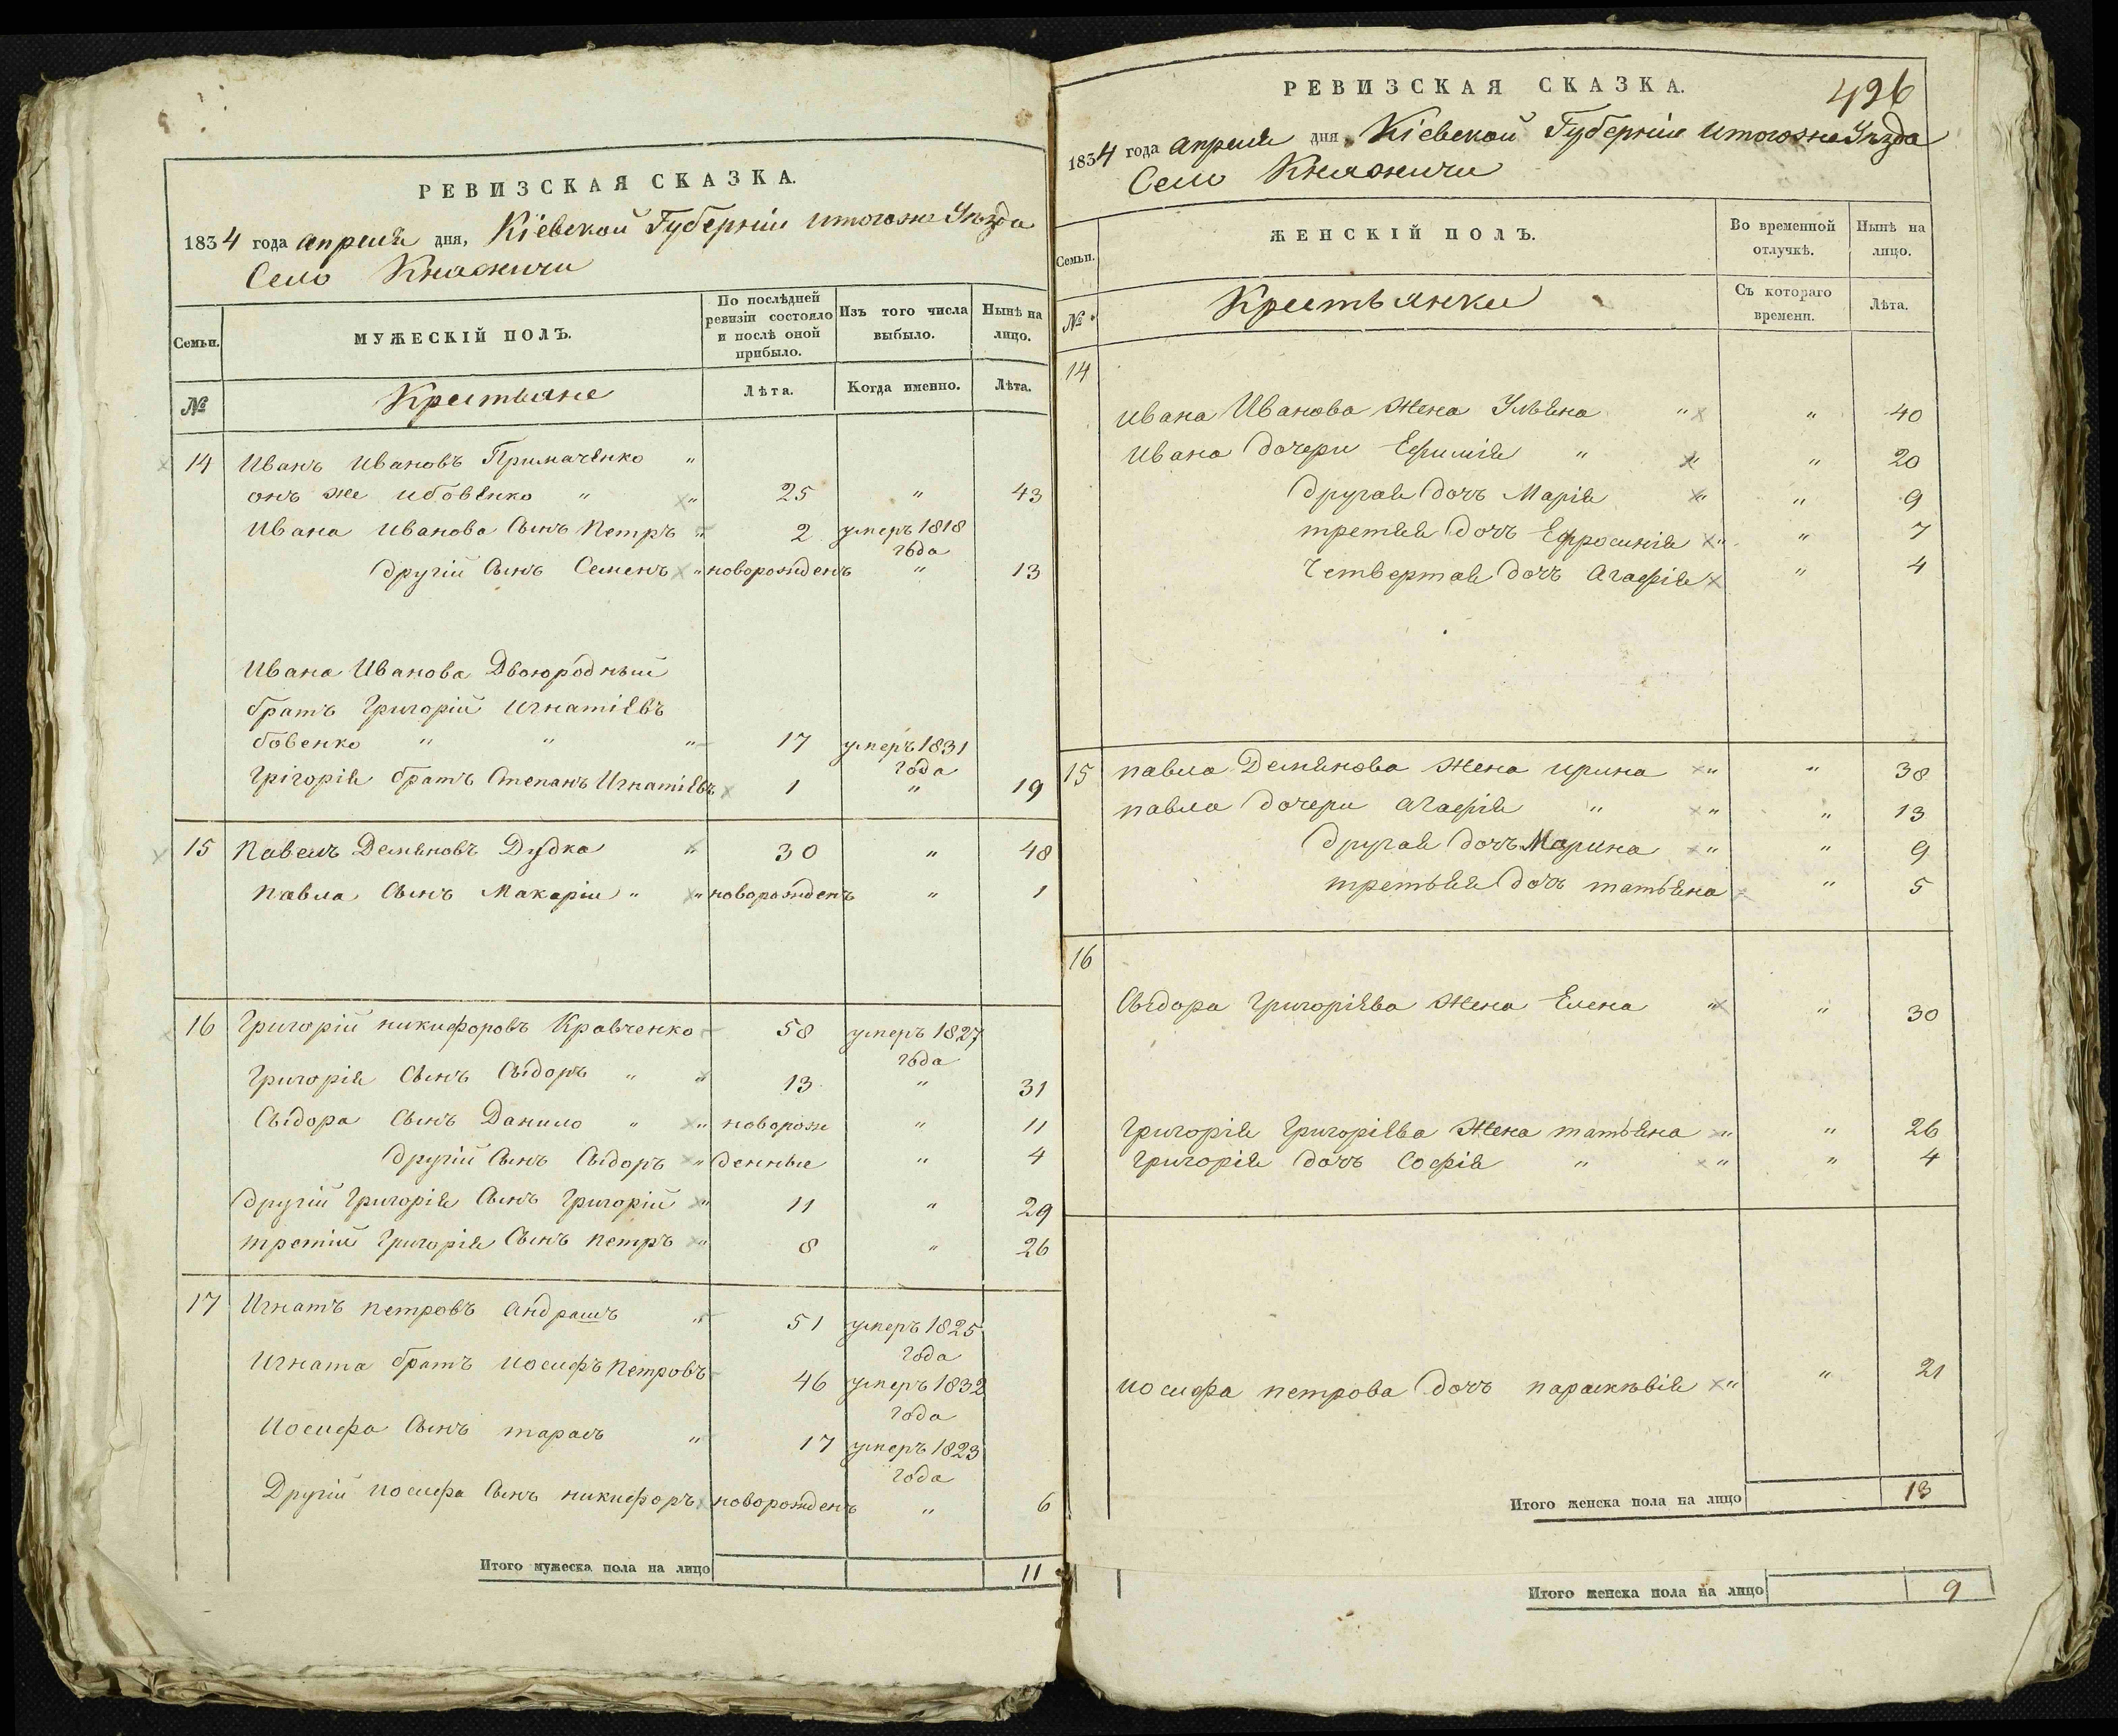 РЕВИЗСКАЯ СКАЗКА.
1834 года апреля дня, Кіевской Губерніи итогоже Уѣзда
Село Княжичи
Семьи.
МУЖЕСКІЙ ПОЛЪ.
По послѣдней ревизіи состояло и послѣ оной прибыло.
Изъ того числа выбыло.
Нынѣ на лицо.
№
Крестьяне
Лѣта.
Когда именно.
Лѣта.
14 Иванъ Ивановъ Примаченко "
онъ же ибовенко " " 25 " 43
Ивана Иванова Сынъ Петръ " 2 умеръ 1818 года
другій Сынъ Семенъ " новорожденъ " 13
Ивана Иванова Двоюродный
братъ Григорій Игнатіевъ
бовенко " " " 17 умеръ 1831 года
Грігорія братъ Степанъ Игнатіевъ 1 " 19
15 Павелъ Демяновъ Дудка " 30 " 48
Павла Сынъ Макарій " " новорожденъ " 1
16 Григорій никифоровъ Кравченко 58 умеръ 1827 года
Григорія Сынъ Сидоръ " " 13 " 31
Сидора Сынъ Данило " " новорож " 11
другій Сынъ Сидоръ " денные " 4
другій Григорія Сынъ Григорій " 11 " 29
третій Григорія Сынъ петръ " 8 " 26
17 Игнатъ петровъ Андрашъ " 51 умеръ 1825 года
Игната братъ иосифъ петровъ 46 умеръ 1832 года
Иосифа Сынъ тарасъ " 17 умеръ 1823 года
Другій иосифа Сынъ никифоръ новорожденъ " 6
Итого мужеска пола на лицо 11
РЕВИЗСКАЯ СКАЗКА.
426
1834 года апреля дня, Кіевской Губерніи итогоже Уѣзда
Село Княжичи
Семьи.
ЖЕНСКІЙ ПОЛЪ.
Во временной отлучкѣ.
Нынѣ на лицо.
№
Крестьянки
Съ котораго времени.
Лѣта.
14
Ивана Иванова жена Ульяна " " 40
Ивана дочери Ефимія " " " 20
другая дочь Марія " " 9
третяя дочь Ефросинія " " 7
Четвертая дочь Агафія " 4
15 павла Демянова жена ирина " " 38
павла дочери агафія " " " 13
другая дочь Марина " " 9
третьяя дочь татьяна " 5
16
Сидора Григоріева жена Елена " " 30
Григорія Григоріева жена татьяна " " 26
Григорія дочь Софія " " " 4
иосифа петрова дочь параскѣвія " " 21
Итого женска пола на лицо 13
Итого женска пола на лицо 9